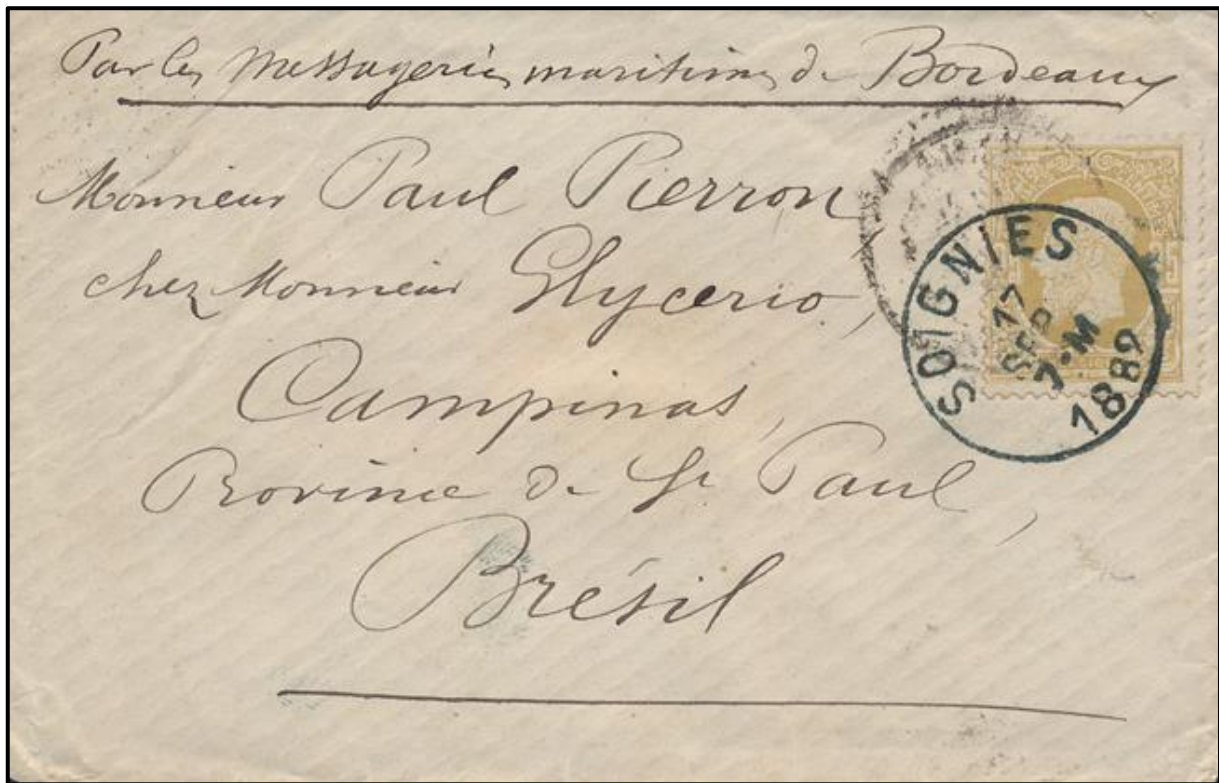 Par les Messageries maritimes de Bordeaux
Monsieur Paul Pierron
chez Monsieur Glycerio,
Campinas,
Province de St Paul,
Brésil
SOIGNIES
17
SEPT
7-M
1882